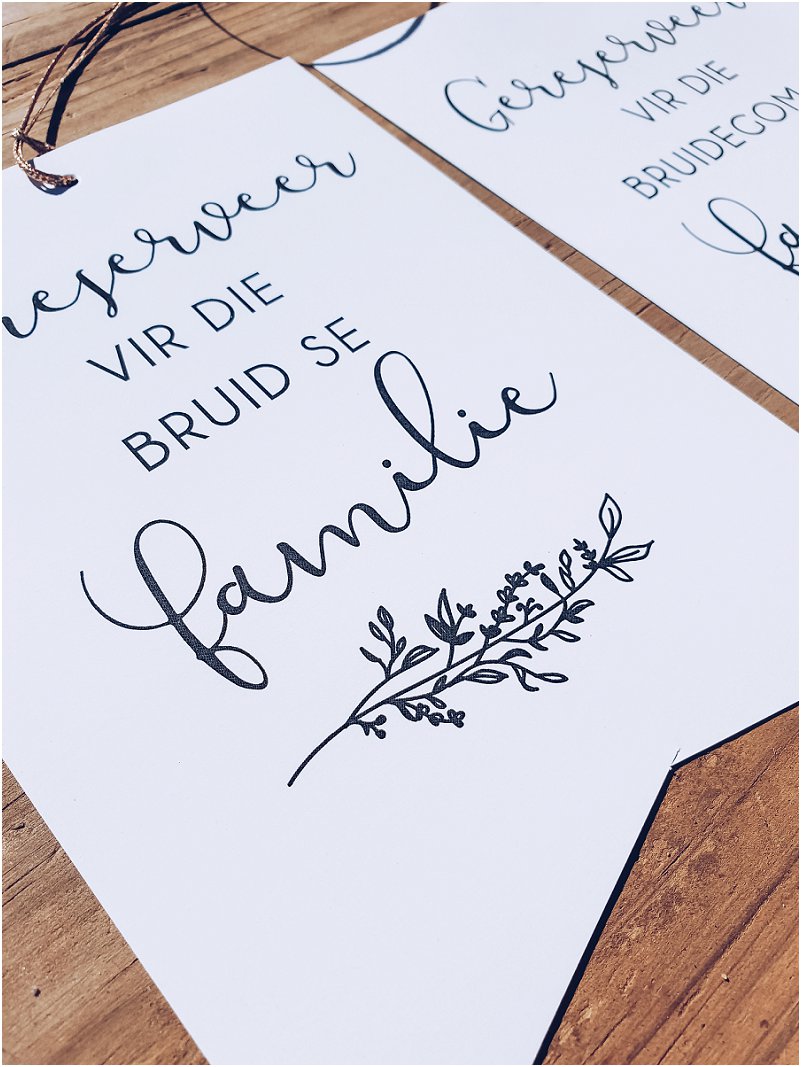 reserveer
VIR DIE
BRUID SE
familie
Gereserveer
VIR DIE
BRUIDEGOM
fa